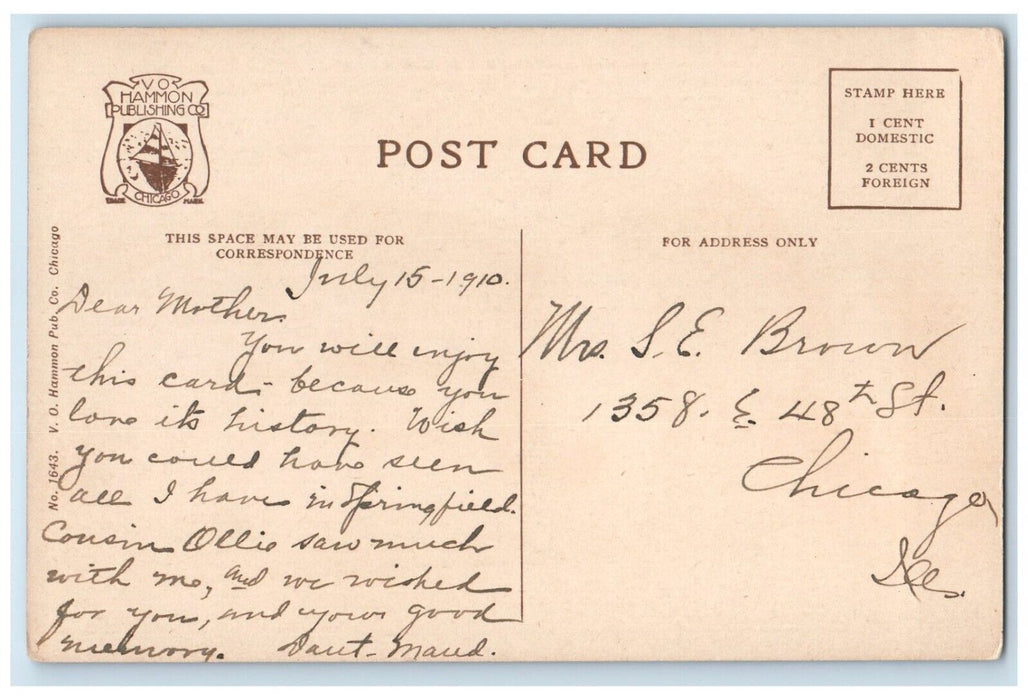 V O
HAMMON
PUBLISHING CO
CHICAGO
TRADE MARK
POST CARD
STAMP HERE
1 CENT
DOMESTIC
2 CENTS
FOREIGN
No. 1643. V. O. Hammon Pub. Co. Chicago
THIS SPACE MAY BE USED FOR
CORRESPONDENCE
July 15-1910.
Dear Mother.
You will enjoy
this card - because you
love its history. Wish
you could have seen
all I have in Springfield.
Cousin Ollie saw much
with me, and we wished
for you, and your good
memory. Maud.
FOR ADDRESS ONLY
Mrs. S. E. Brown
1358. E. 48th St.
Chicago
Ills.